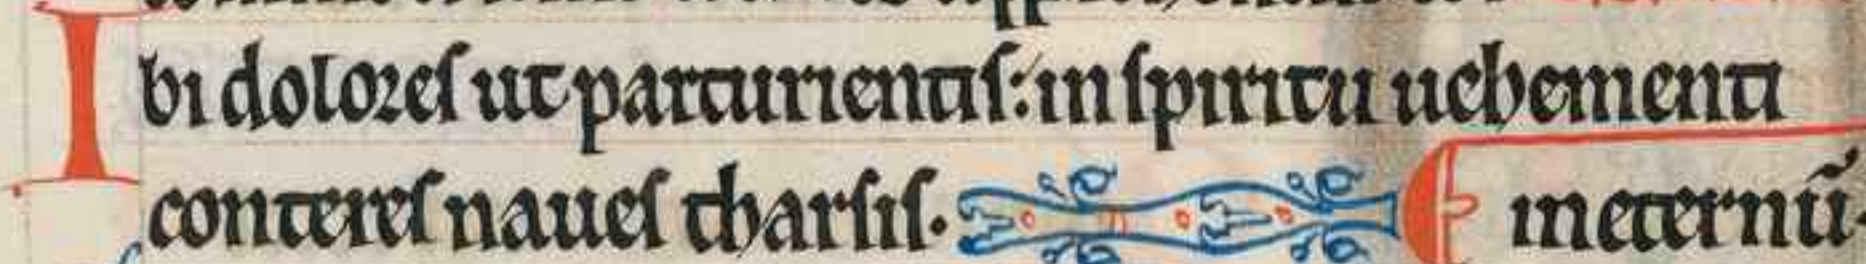 Ibi dolores ut parturientis: in spiritu uehementi
conteres naues tharsis. E in eternū.